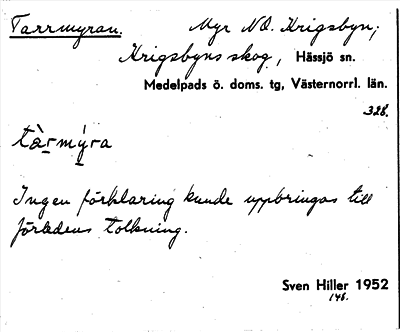 Tarrmyran. Myr NO. Krigsbyn;
Krigsbyns skog, Hässjö sn.
Medelpads ö. doms. tg, Västernorrl. län.
328.
tàrmýra
Ingen förklaring kunde uppbringas till
förledens tolkning.
Sven Hiller 1952
148.